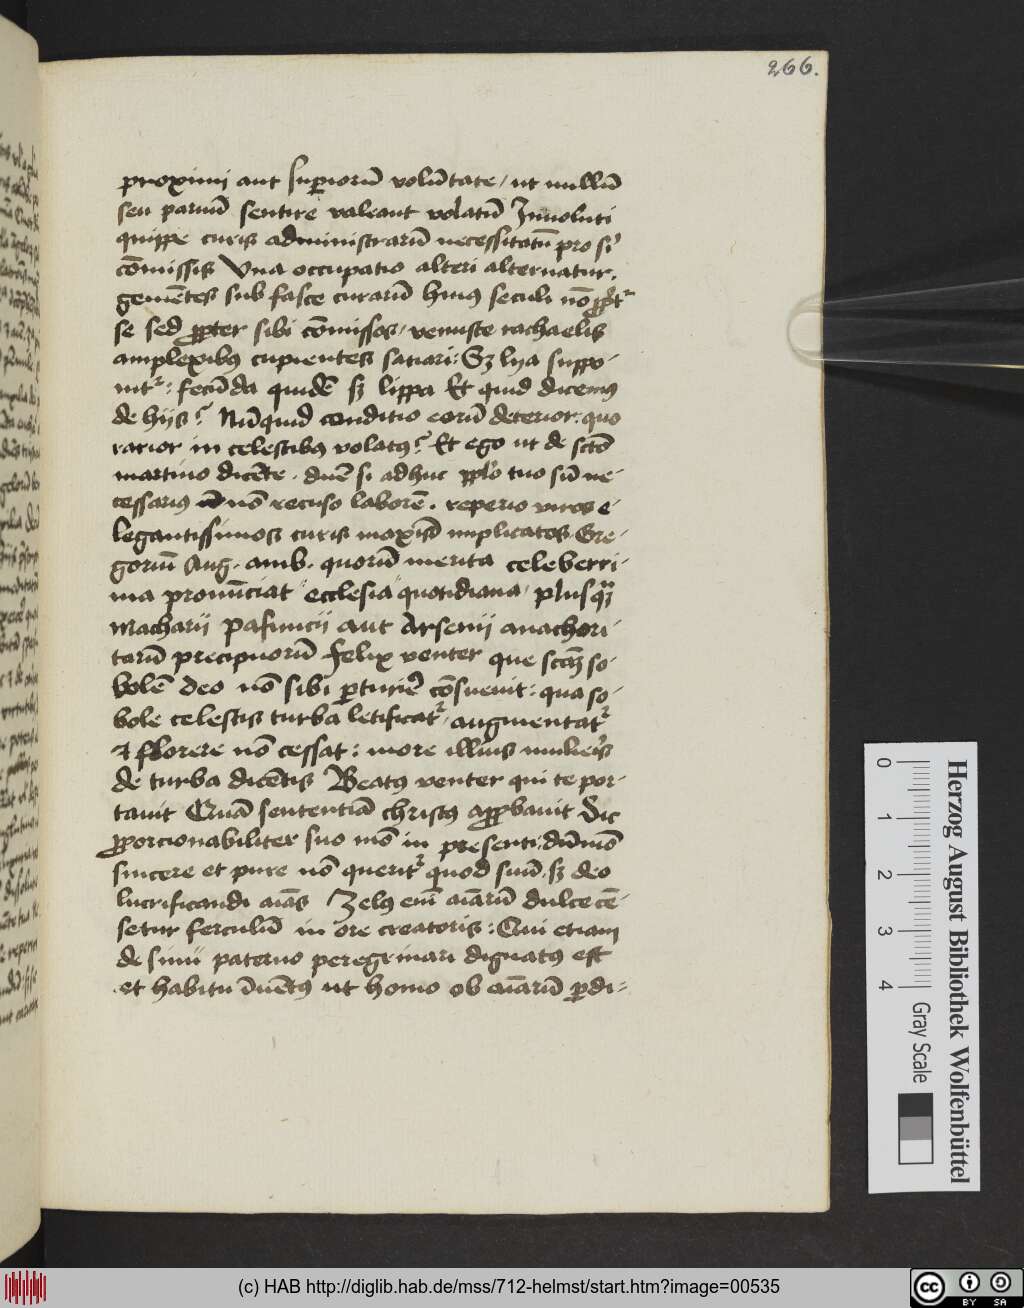 266.
proximi aut supiorū volūtate, ut nullū
seu paruū sentire valeant volatū Inuoluti
quippe curis administrariū necessitatū pro si'
cōmissis Vna occupatio alteri alternatur.
gemētes sub fasce curarū huius seculi nō ppt'
se sed ppter sibi cōmissos, venuste rachaelis
amplexibus cupientes satiari: Sz lya suppo-
nit': fecūda quidē sz lippa Et quid dicemus
de hijs? Nūquid conditio eorū deterior: quo
rarior in celestibus volatus? Et ego ut de scto
martino dicēte. dne si adhuc pplo tuo sū ne-
cessarius nō recuso laborē. reperio viros e-
legantissimos curis maxis implicatos. Gre-
goriū Aug. amb. quorū merita celeberri-
ma pronūciat ecclesia quotidiana, plusqz
Macharii Pafuncii aut Arsenii anachori-
tarū precipuorū felix venter que sctaz so-
bolē deo nō sibi pturire cōsueuit: qua so-
bole celestis turba letificat', augmentat'
et florere nō cessat: more illius mulieris
de turba dicētis Beatus venter qui te por-
tauit Quā sententiā christus approbauit Sic
pporcionabiliter suo mō in presenti, dūmō
sincere et pure nō querit' quod suū, sz deo
lucrificandi aīas Zelus em aīarū dulce cē-
setur ferculū in ore creatoris: Qui etiam
de sinu paterno peregrinari dignatus est
et habitu īuētus ut homo ob aīarū pdi-
Herzog August Bibliothek Wolfenbüttel
0 1 2 3 4
Gray Scale
(c) HAB http://diglib.hab.de/mss/712-helmst/start.htm?image=00535
cc BY SA